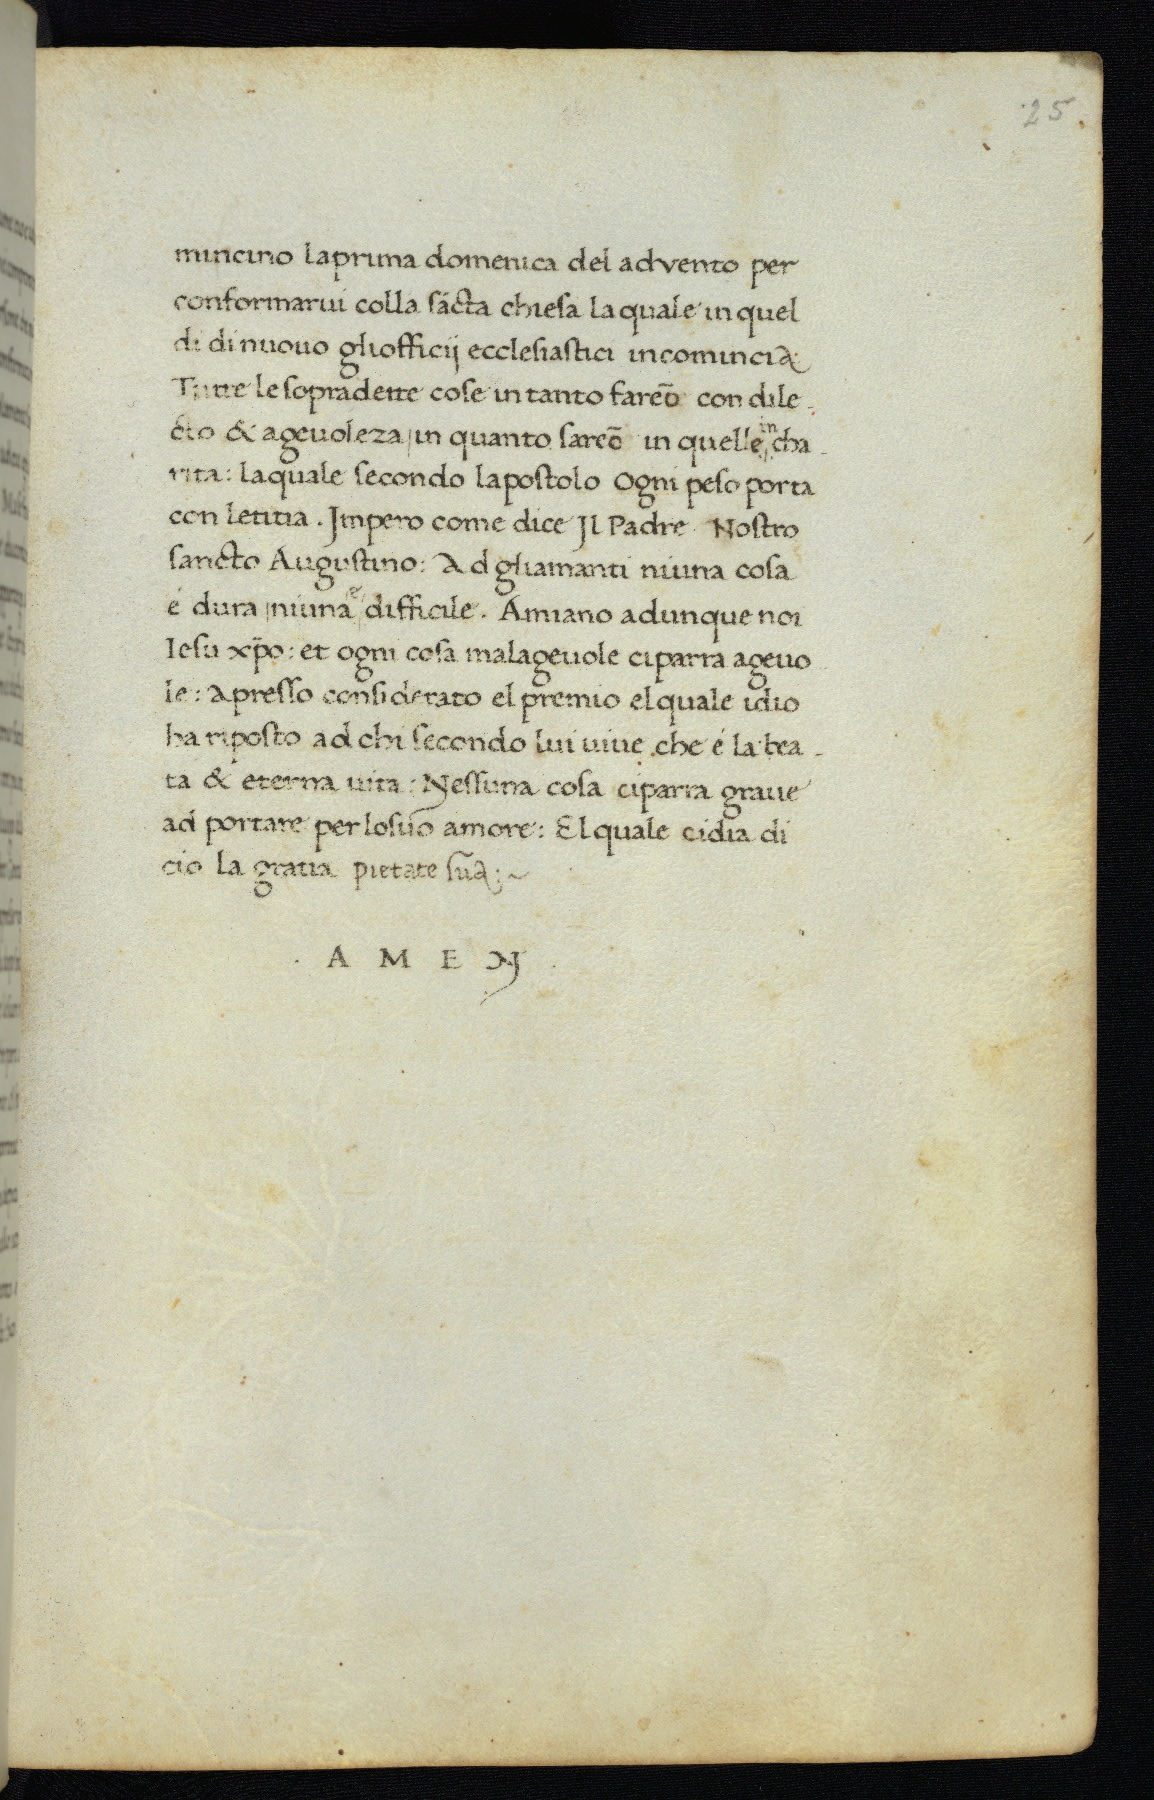 25
mincino laprima domenica del advento per
conformarui colla sācta chiesa laquale in quel
di di nuouo gliofficij ecclesiastici incomincia
Tutte le sopradette cose in tanto fareō con dile-
cto & ageuoleza in quanto sareō in quelle in cha-
rita: laquale secondo lapostolo Ogni peso porta
con letitia. Impero come dice Il Padre Nostro
sancto Augustino: Ad gliamanti niuna cosa
é dura niuna é difficile. Amiano adunque noi
Iesu xp̄o: et ogni cosa malageuole ciparra ageuo
le: Apresso considerato el premio elquale idio
ha riposto ad chi secondo lui uiue che é la bea-
ta & eterna uita: Nessuna cosa ciparra graue
ad portare per losuo amore: Elquale cidia di
cio la gratia pietate sua:~
. A M E N .